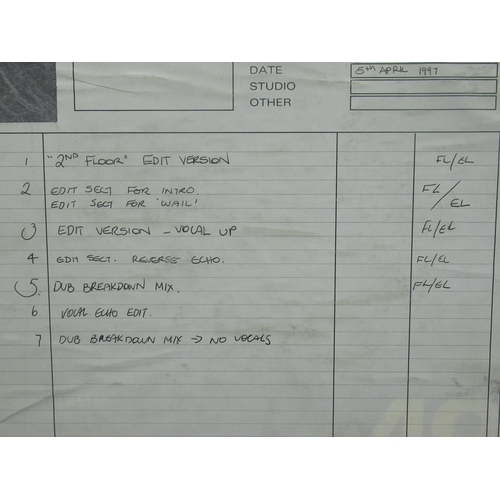 DATE 5TH APRIL 1997
STUDIO
OTHER
1 "2ND FLOOR" EDIT VERSION FL/EL
2 EDIT SECT FOR INTRO. FL/EL
EDIT SECT FOR 'WAIL'
3 EDIT VERSION - VOCAL UP FL/EL
4 EDIT SECT. REVERSE ECHO. FL/EL
5. DUB BREAKDOWN MIX. FL/EL
6 VOCAL ECHO EDIT.
7 DUB BREAKDOWN MIX → NO VOCALS